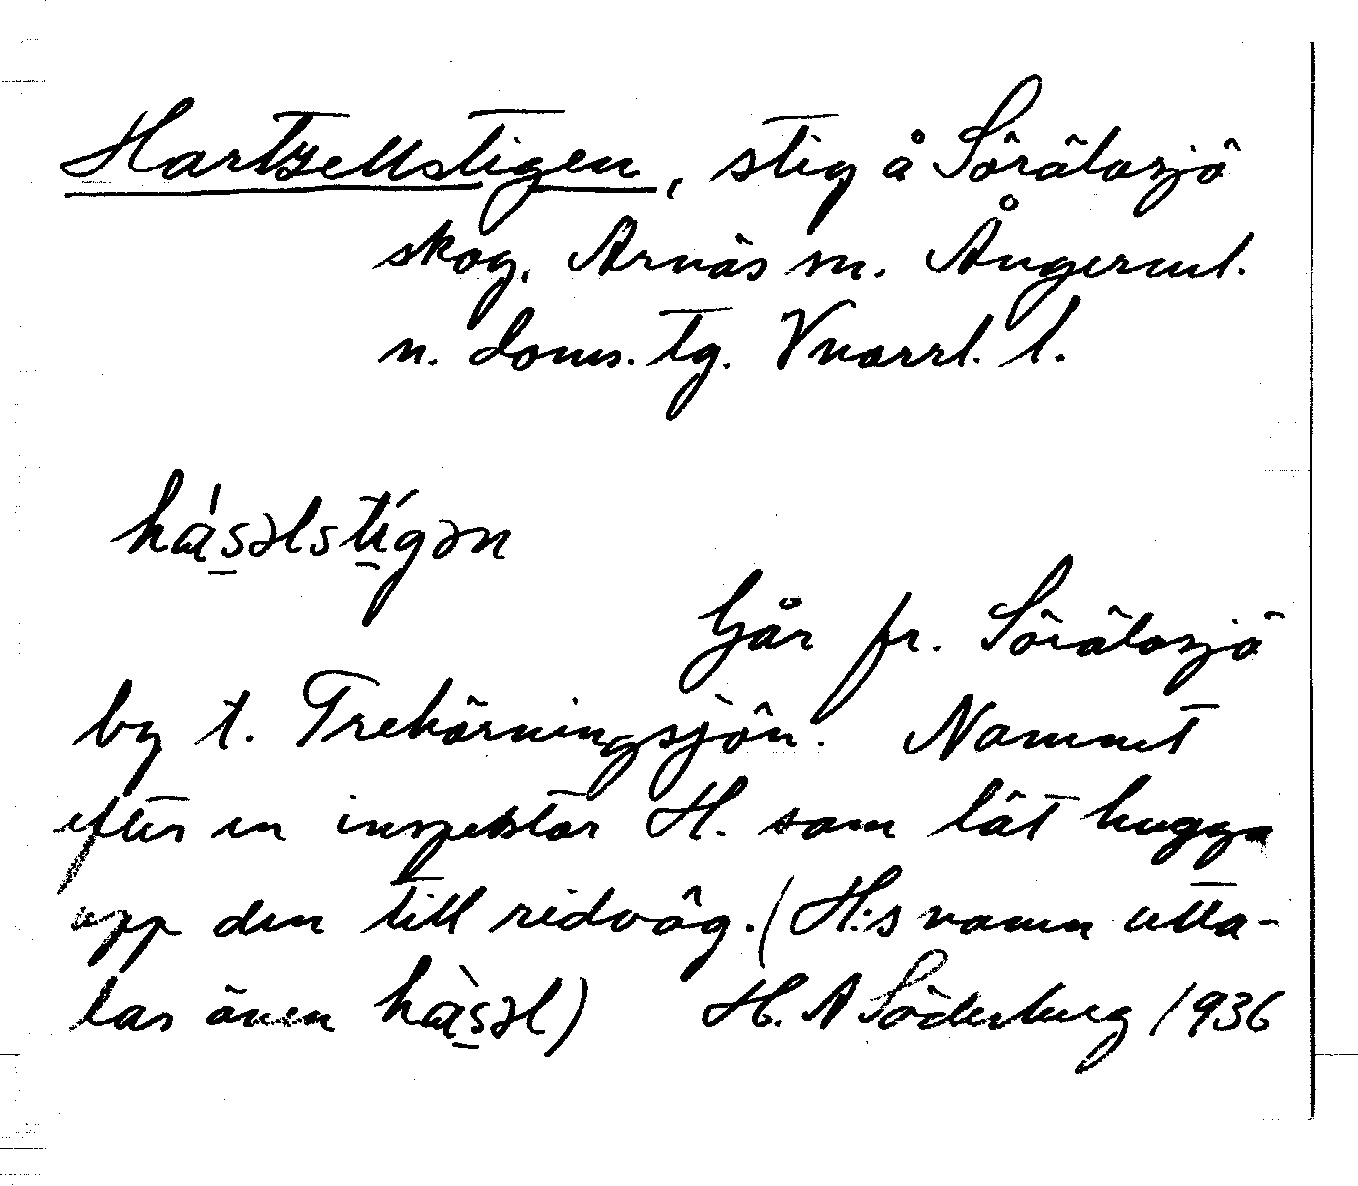 Hartzellstigen, stig å Sörätosjö
skog, Arnäs sn. Ångerml.
n. doms. tg. Vnorrl. l.
hásəlstígən
Går fr. Sörätosjö
by t. Trekärningsjön. Namnet
efter en inspektor H. som lät hugga
upp den till ridväg. (H:s namn utta-
las även hàsəl) H. A Söderberg 1936